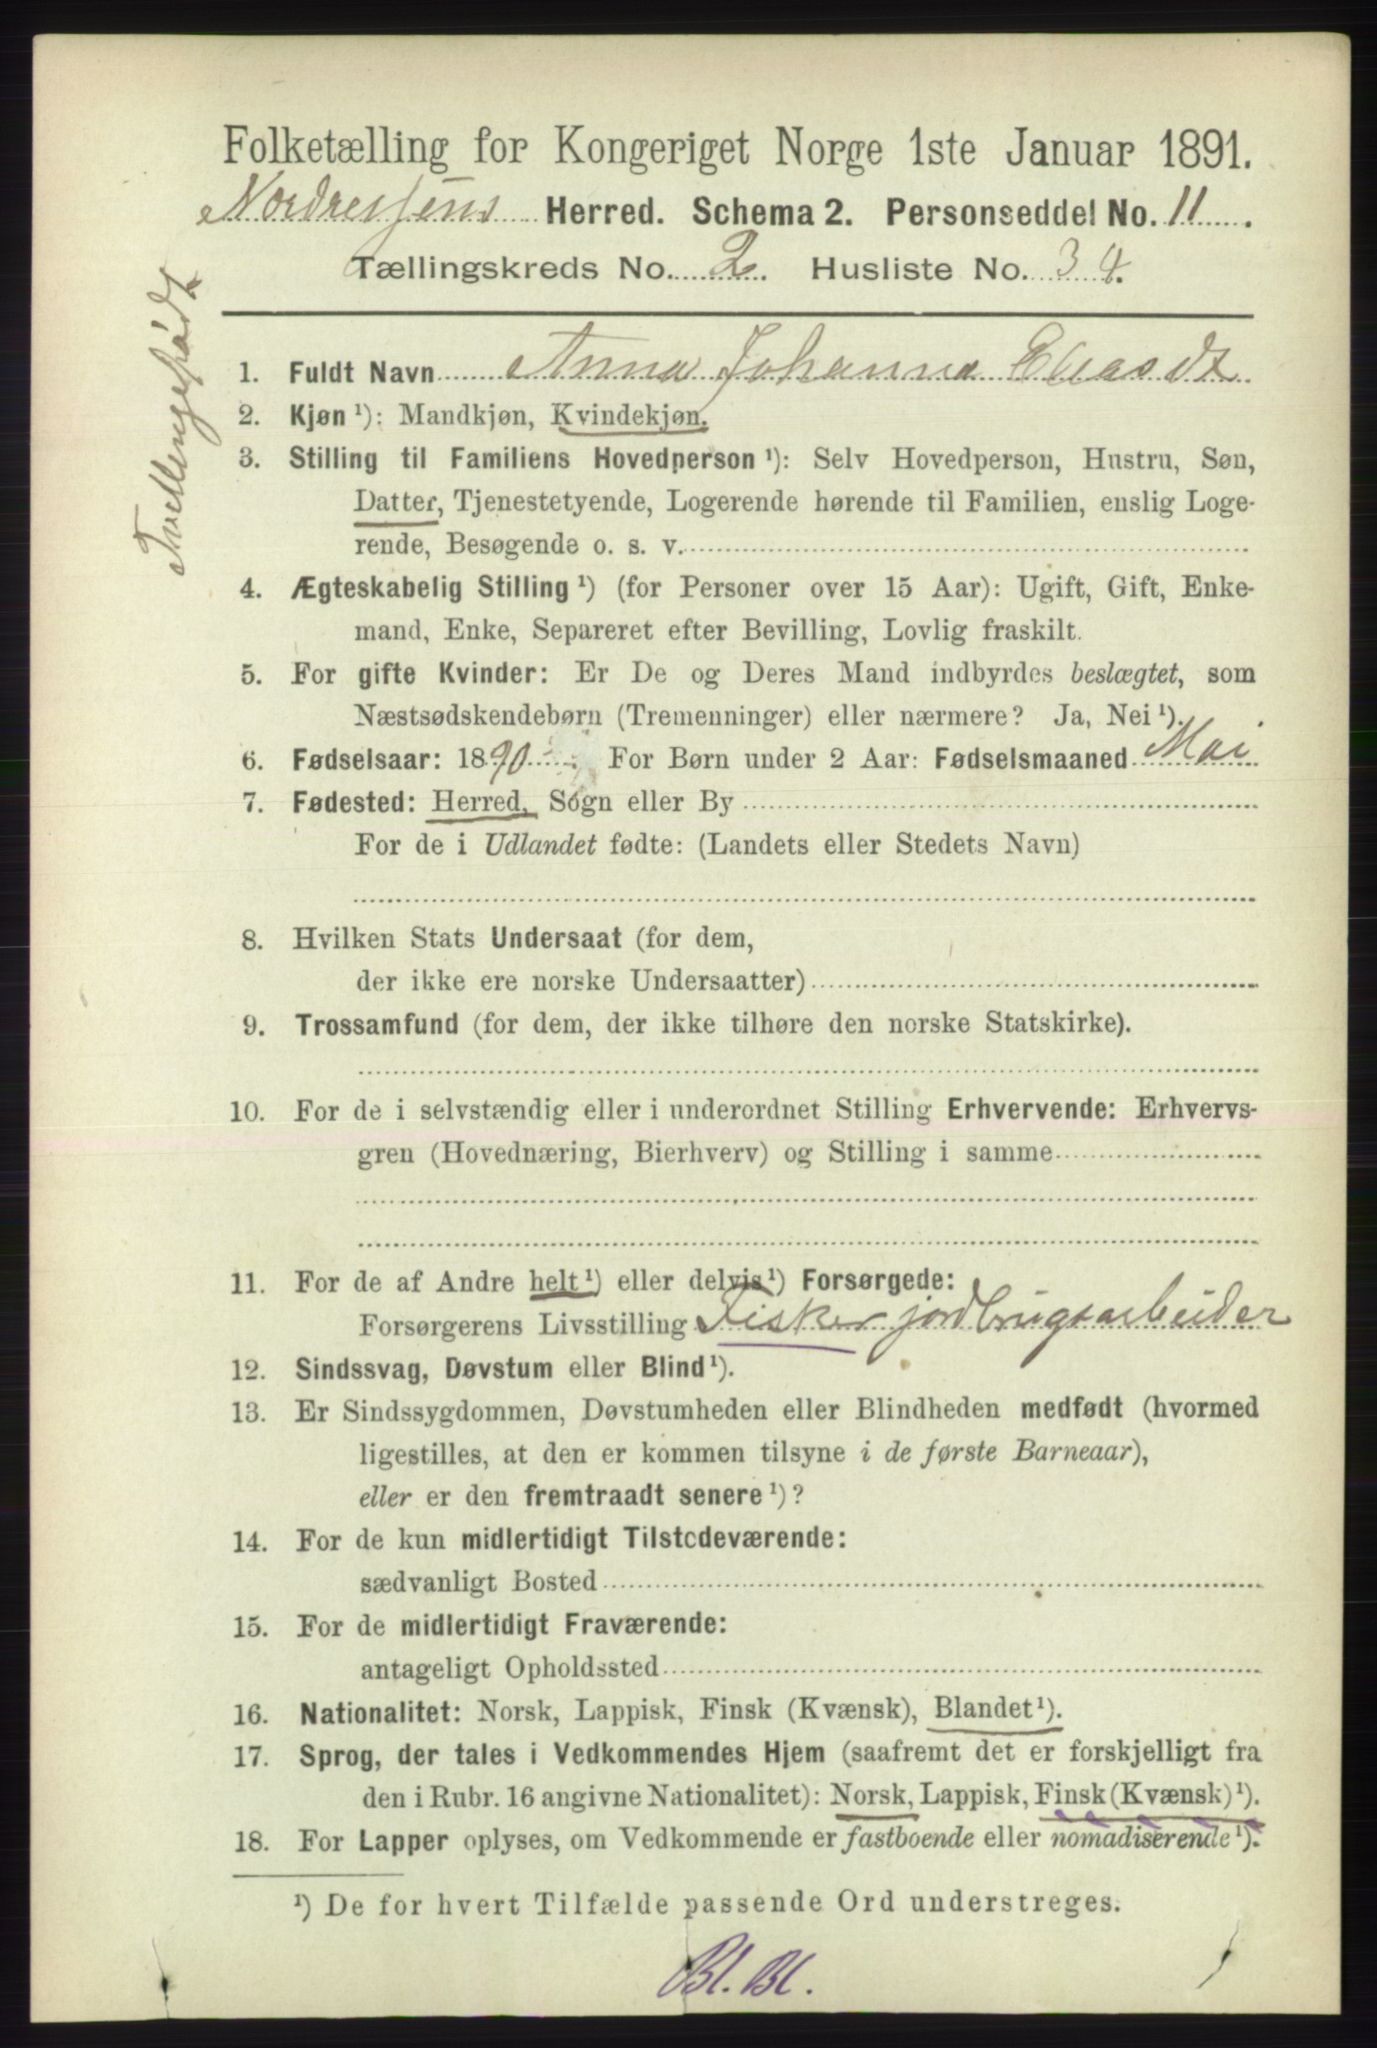 Folketælling for Kongeriget Norge 1ste Januar 1891.
Nordreisens Herred. Schema 2. Personseddel No. 11.
Tællingskreds No. 2. Husliste No. 34.
Tvillingefødt
1. Fuldt Navn Anna Johanna Eliasdt
2. Kjøn ¹): Mandkjøn, Kvindekjøn.
3. Stilling til Familiens Hovedperson ¹): Selv Hovedperson, Hustru, Søn,
Datter, Tjenestetyende, Logerende hørende til Familien, enslig Loge-
rende, Besøgende o. s. v.
4. Ægteskabelig Stilling ¹) (for Personer over 15 Aar): Ugift, Gift, Enke-
mand, Enke, Separeret efter Bevilling, Lovlig fraskilt.
5. For gifte Kvinder: Er De og Deres Mand indbyrdes beslægtet, som
Næstsødskendebørn (Tremenninger) eller nærmere? Ja, Nei ¹).
6. Fødselsaar: 1890. For Børn under 2 Aar: Fødselsmaaned Mai
7. Fødested: Herred, Sogn eller By
For de i Udlandet fødte: (Landets eller Stedets Navn)
8. Hvilken Stats Undersaat (for dem,
der ikke ere norske Undersaatter)
9. Trossamfund (for dem, der ikke tilhøre den norske Statskirke).
10. For de i selvstændig eller i underordnet Stilling Erhvervende: Erhvervs-
gren (Hovednæring, Bierhverv) og Stilling i samme
11. For de af Andre helt ¹) eller delvis ¹) Forsørgede:
Forsørgerens Livsstilling Fisker jordbrugsarbeider
12. Sindssvag, Døvstum eller Blind ¹).
13. Er Sindssygdommen, Døvstumheden eller Blindheden medfødt (hvormed
ligestilles, at den er kommen tilsyne i de første Barneaar),
eller er den fremtraadt senere ¹)?
14. For de kun midlertidigt Tilstedeværende:
sædvanligt Bosted
15. For de midlertidigt Fraværende:
antageligt Opholdssted
16. Nationalitet: Norsk, Lappisk, Finsk (Kvænsk), Blandet ¹).
17. Sprog, der tales i Vedkommendes Hjem (saafremt det er forskjelligt fra
den i Rubr. 16 angivne Nationalitet): Norsk, Lappisk, Finsk (Kvænsk) ¹).
18. For Lapper oplyses, om Vedkommende er fastboende eller nomadiserende ¹).
¹) De for hvert Tilfælde passende Ord understreges.
Bl. Bl.